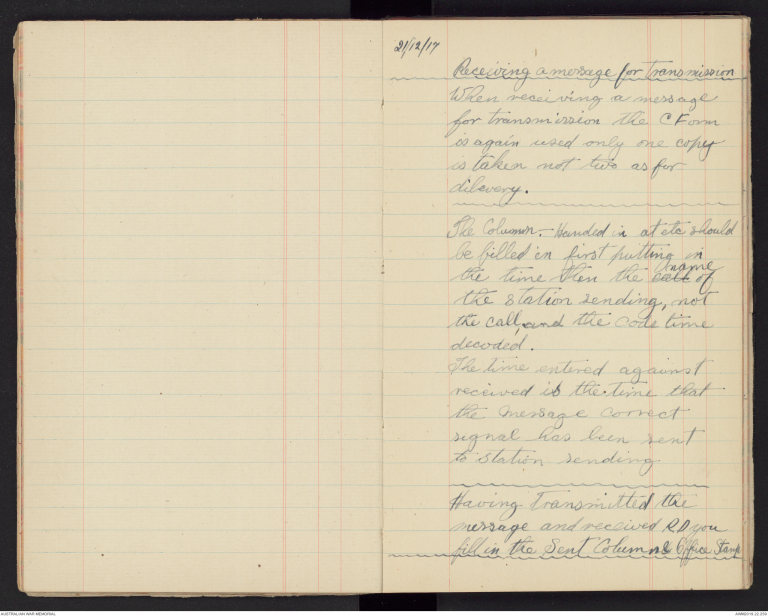 21/12/17
Receiving a message for transmission
When receiving a message
for transmission the C Form
is again used only one copy
is taken not two as for
dilevery.
The Column. - Handed in at etc should
be filled in first putting in
the time then the call name of
the station sending, not
the call, and the code time
decoded.
The time entered against
received is the time that
the message correct
signal has been sent
to station sending
Having transmitted the
message and received R.D you
fill in the Sent Column & Office Stamp
AUSTRALIAN WAR MEMORIAL